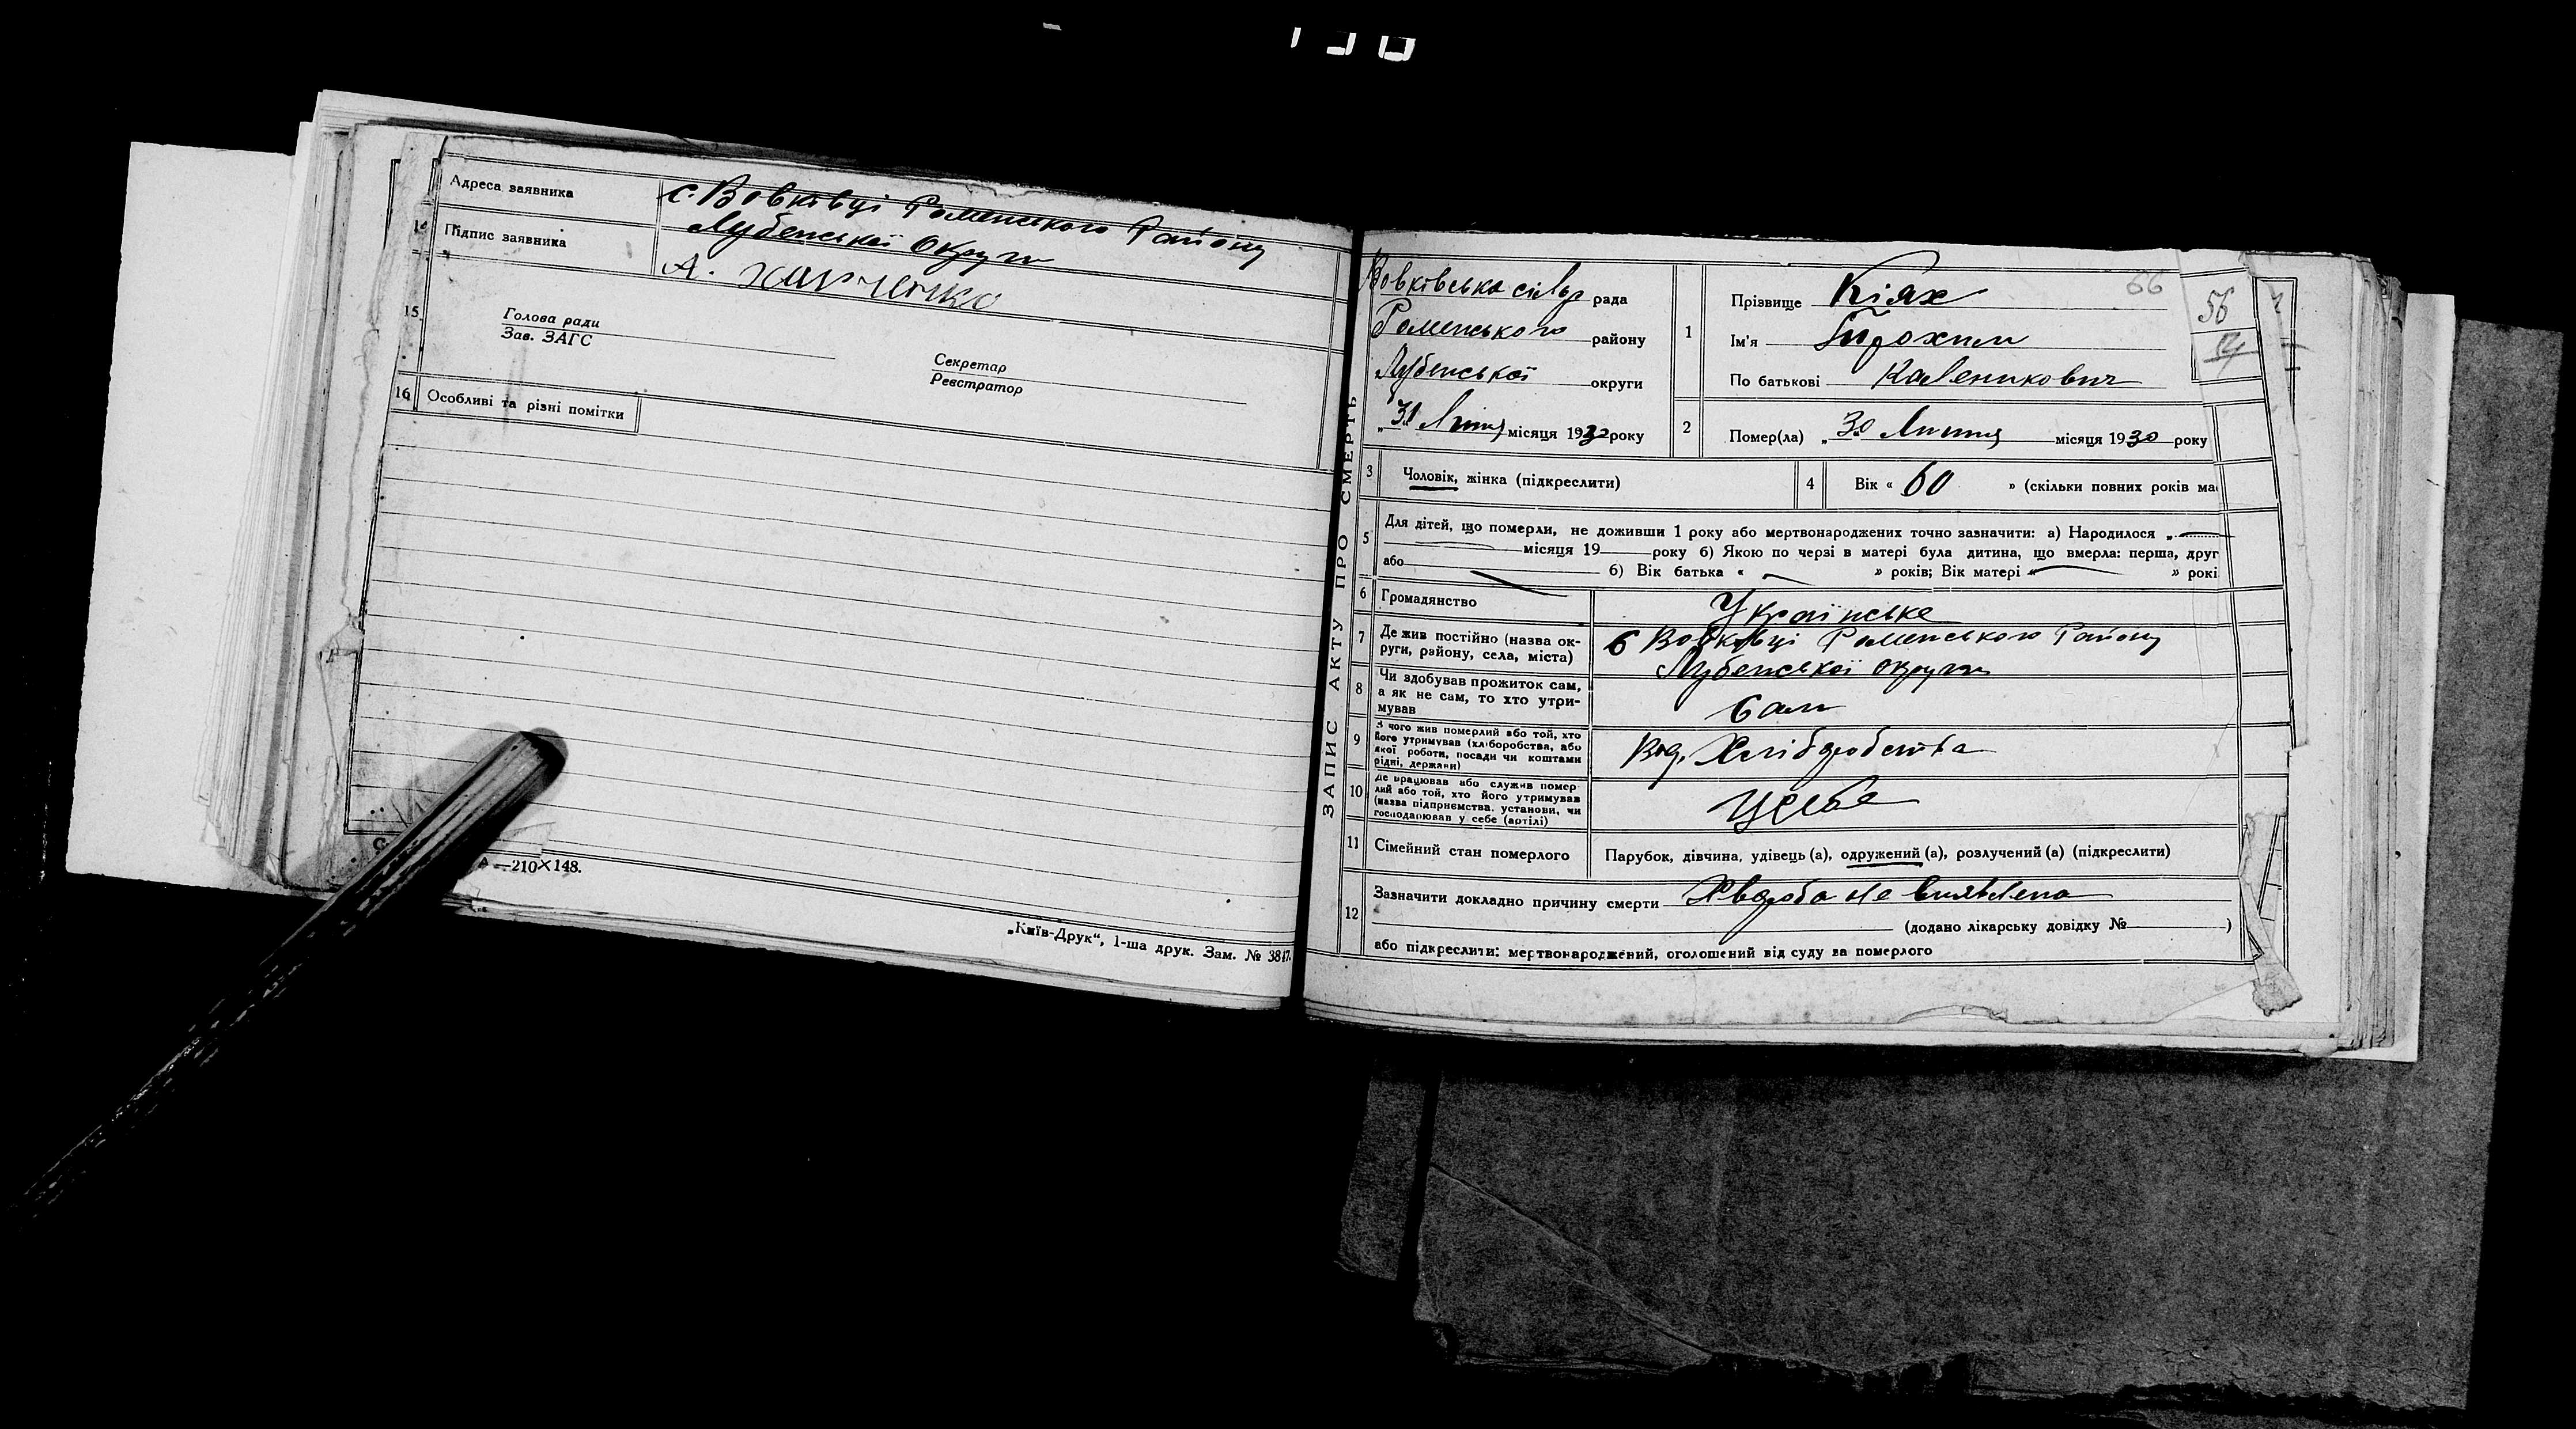 Адреса заявника с. Вовківці Роменського Району
Лубенської Округи
14 Підпис заявника А. Харченко
15 Голова ради
Зав. ЗАГС
Секретар
Реєстратор
16 Особливі та різні помітки
210×148.
„Київ-Друк“, 1-ша друк. Зам. № 3847.
ЗАПИС АКТУ ПРО СМЕРТЬ
Вовківська сільр рада
Роменського району
Лубенської округи
„31 Липня місяця 1930 року
66
56
1 Прізвище Кіях
Ім'я Трохим
По батькові Каленикович
2 Помер(ла) „30 Липня місяця 1930 року
3 Чоловік, жінка (підкреслити)
4 Вік « 60 » (скільки повних років ма
5 Для дітей, що померли, не доживши 1 року або мертвонароджених точно зазначити: а) Народилося „
місяця 19 року б) Якою по черзі в матері була дитина, що вмерла: перша, друг
або б) Вік батька « » років; Вік матері « » рокі
6 Громадянство Українське
7 Де жив постійно (назва округи, району, села, міста) с Вовківці Роменського Району
Лубенської округи
8 Чи здобував прожиток сам,
а як не сам, то хто утри-
мував Сам
9 З чого жив померлий або той, хто
його утримував (хліборобства, або
якої роботи, посади чи коштами
рідні, держави) Від. Хліборобства
10 Де працював або служив помер
лий або той, хто його утримував
(назва підприємства, установи, чи
господарював у себе (артілі) У себе
11 Сімейний стан померлого Парубок, дівчина, удівець (а), одружений (а), розлучений (а) (підкреслити)
12 Зазначити докладно причину смерти Хвороба не виявлена
(додано лікарську довідку № )
або підкреслити: мертвонароджений, оголошений від суду за померлого